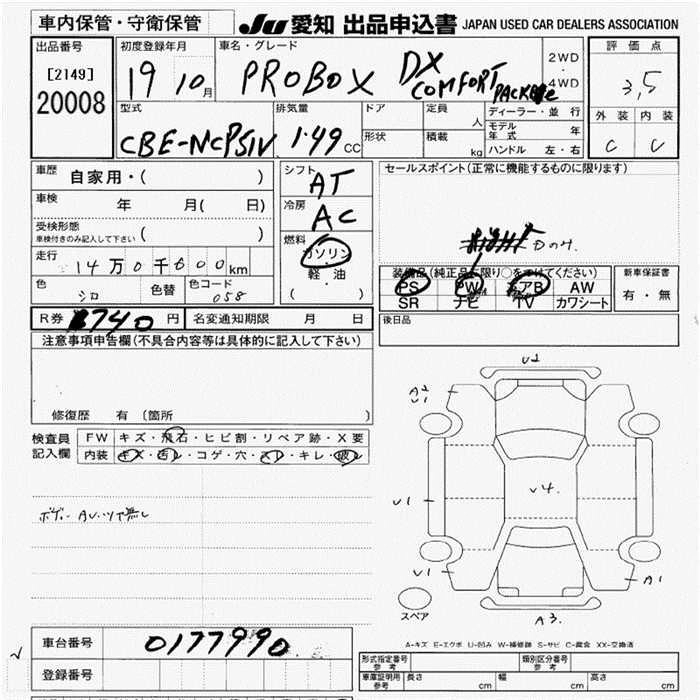 車内保管・守衛保管 JU 愛知 出品申込書 JAPAN USED CAR DEALERS ASSOCIATION
出品番号 初度登録年月 車名・グレード 2WD 評価点
[2149] 19 10月 PROBOX DX COMFORT PACKAGE 4WD 3,5
20008 型式 排気量 ドア 定員 人 ディーラー・並行 外装 内装
CBE-NCP51V 1.49 CC 形状 積載 kg モデル年式 年 C C
ハンドル 左・右
車歴 自家用・( ) シフト AT セールスポイント(正常に機能するものに限ります)
車検 年 月( 日) 冷房 AC
受検形態 車検付きのみ記入して下さい ( ) 燃料 ガソリン
走行 14万0千600km 軽・油 装備品(純正品に限り○をつけてください) 新車保証書
色 シロ 色替 色コード 058 ( ) PS PW エアB AW 有・無
SR ナビ TV カワシート
R券 8740円 名変通知期限 月 日 後日品
注意事項申告欄(不具合内容等は具体的に記入して下さい)
修復歴 有 (箇所
検査員 FW キズ・飛石・ヒビ割・リペア跡・X要
記入欄 内装 キズ・汚レ・コゲ・穴・スレ・キレ・破レ
U2
A2
U1
U1
V4.
U1
A1
A3.
スペア
A-キズ E-エクボ U-凹み W-補修跡 S-サビ C-腐食 XX-交換済
車台番号 0177990
登録番号
形式指定番号 参考 類別区分番号 参考
車庫証明用 参考 長さ cm 幅 cm 高さ cm